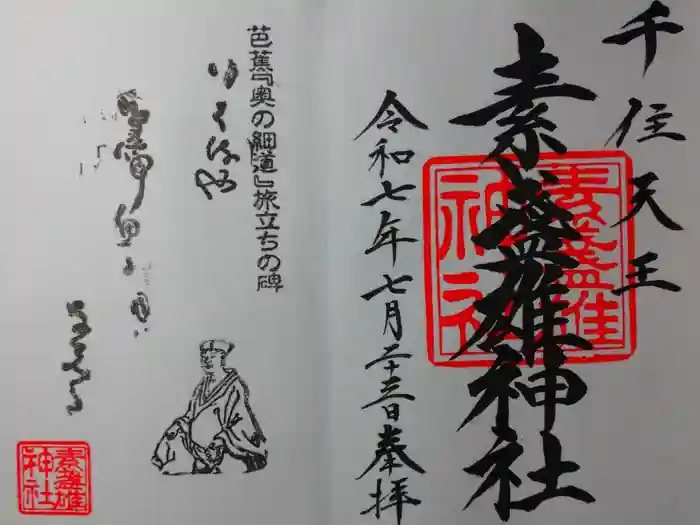 千住天王
素盞雄神社
素盞雄
神社
令和七年七月二十三日奉拝
芭蕉『奥の細道』旅立ちの碑
素盞雄
神社